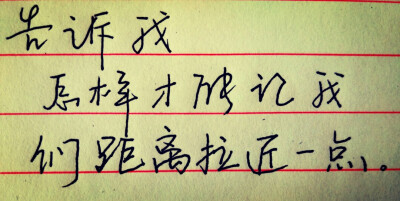 告诉我
怎样才能让我
们距离拉近一点。